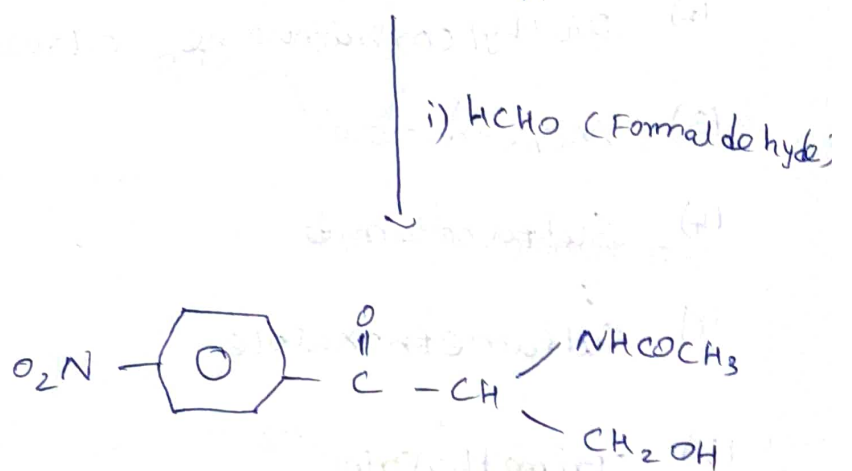 i) HCHO (Formaldehyde)
O
||
O₂N – – C – CH
NHCOCH₃
CH₂OH